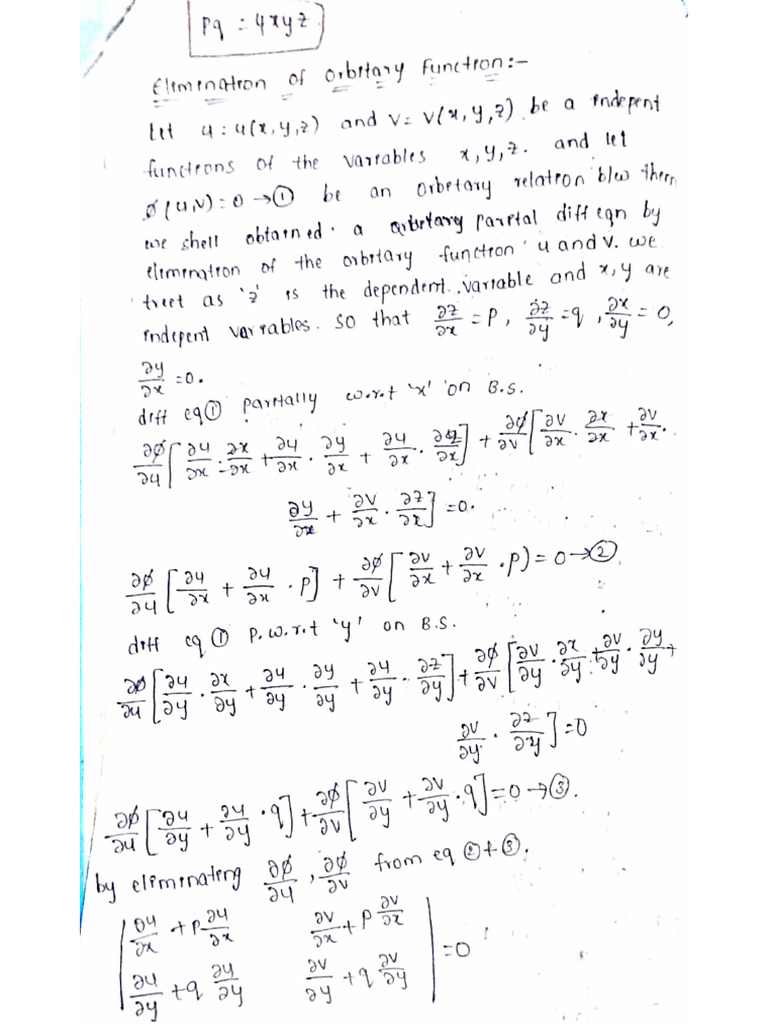 pq = 4xyz
Elimination of orbitary Function:-
Let u = u(x,y,z) and v = v(x,y,z) be a indepent
functions of the variables x,y,z. and let
ø(u,v) = 0 → ① be an orbetary relation b/w them
we shell obtained. a arbetary paretal diff eqn by
elemenation of the orbitary function u and v. we
treet as 'z' is the dependent variable and x,y are
indepent variables. so that ∂z/∂x = p, ∂z/∂y = q, ∂x/∂y = 0,
∂y/∂x = 0.
diff eq ① partially w.r.t 'x' on B.S.
∂ø/∂u [∂u/∂x · ∂x/∂x + ∂u/∂x · ∂y/∂x + ∂u/∂x · ∂z/∂x] + ∂ø/∂v [∂v/∂x · ∂x/∂x + ∂v/∂x ·
∂y/∂x + ∂v/∂x · ∂z/∂x] = 0.
∂ø/∂u [∂u/∂x + ∂u/∂x · p] + ∂ø/∂v [∂v/∂x + ∂v/∂x · p) = 0 → ②
diff eq ① p.w.r.t 'y' on B.S.
∂ø/∂u [∂u/∂y · ∂x/∂y + ∂u/∂y · ∂y/∂y + ∂u/∂y · ∂z/∂y] + ∂ø/∂v [∂v/∂y · ∂x/∂y + ∂v/∂y · ∂y/∂y +
∂v/∂y · ∂z/∂y] = 0
∂ø/∂u [∂u/∂y + ∂u/∂y · q] + ∂ø/∂v [∂v/∂y + ∂v/∂y · q] = 0 → ③.
by eliminating ∂ø/∂u, ∂ø/∂v from eq ② + ③.
| ∂u/∂x + p ∂u/∂x   ∂v/∂x + p ∂v/∂x |
| ∂u/∂y + q ∂u/∂y   ∂v/∂y + q ∂v/∂y | = 0